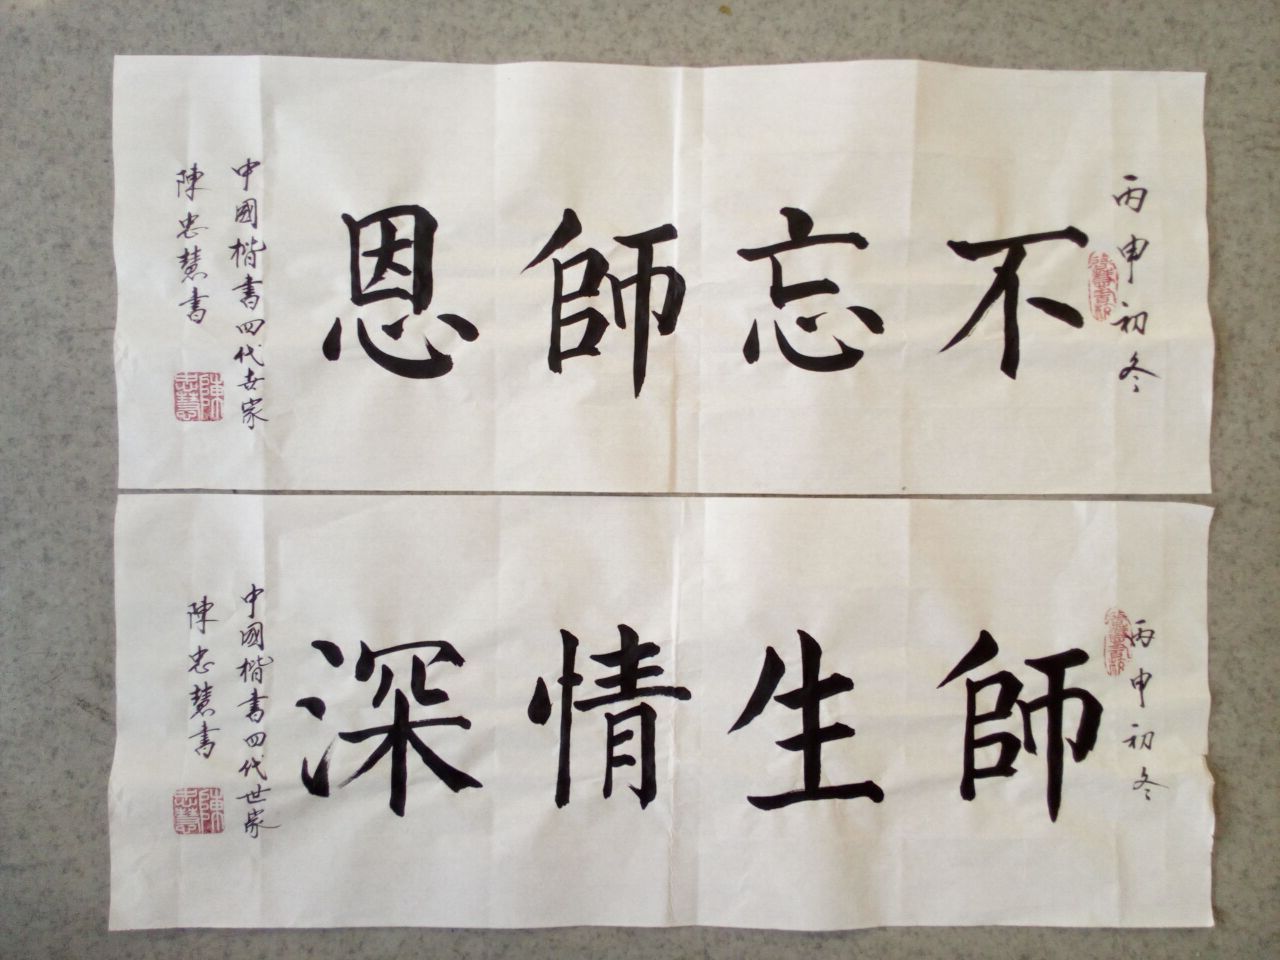 丙申初冬
不忘師恩
中國楷書四代世家
陳忠慧書
陳忠慧
丙申初冬
師生情深
中國楷書四代世家
陳忠慧書
陳忠慧